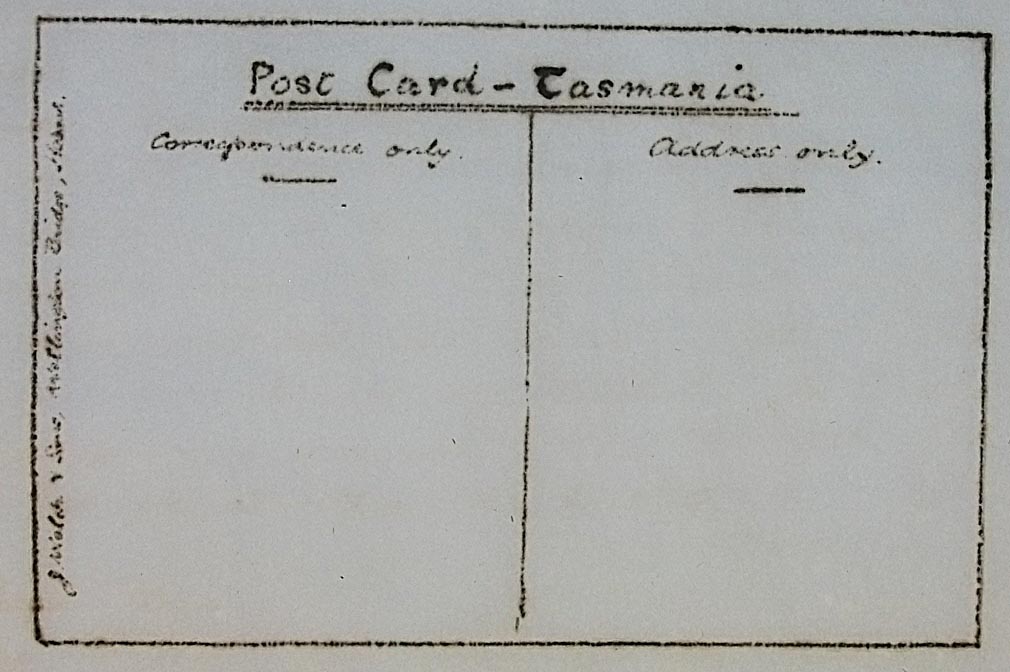 Post Card - Tasmania
Correspondence only.
Address only.
J. Walch & Sons, Wellington Bridge,